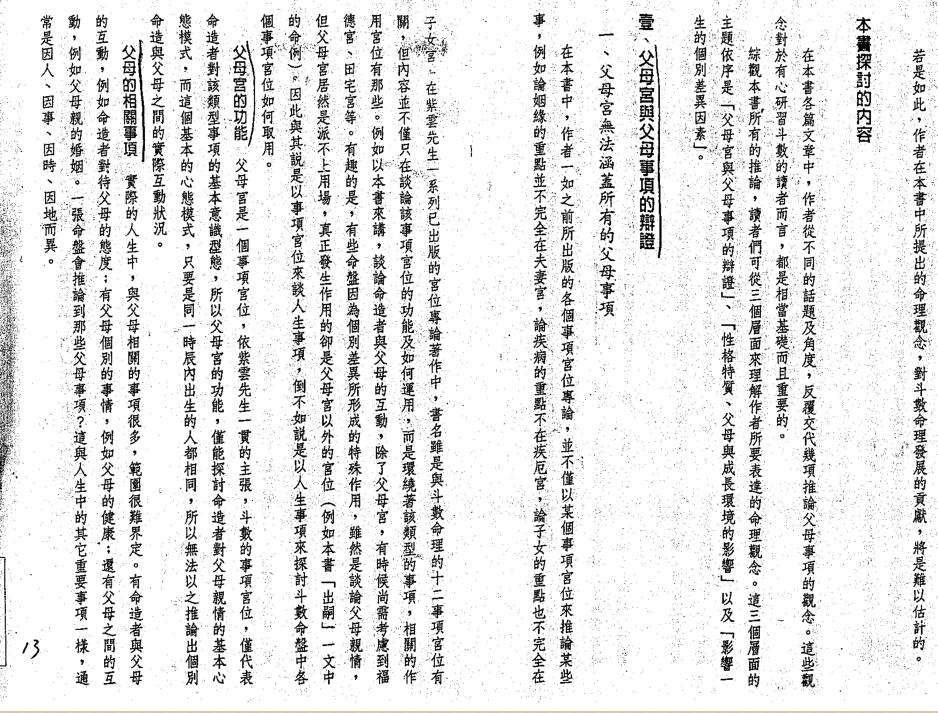 若是如此，作者在本書中所提出的命理觀念，對斗數命理發展的貢獻，將是難以估計的。
本書探討的內容
在本書各篇文章中，作者從不同的話題及角度，反覆交代幾項推論父母事項的觀念。這些觀
念對於有心研習斗數的讀者而言，都是相當基礎而且重要的。
綜觀本書所有的推論，讀者們可從三個層面來理解作者所要表達的命理觀念。這三個層面的
主題依序是「父母宮與父母事項的辯證」、「性格特質、父母與成長環境的影響」以及「影響一
生的個別差異因素」。
壹、父母宮與父母事項的辯證
一、父母宮無法涵蓋所有的父母事項
在本書中，作者一如之前所出版的各個事項宮位專論，並不僅以某個事項宮位來推論某些
事，例如論姻緣的重點並不完全在夫妻宮，論疾病的重點不在疾厄宮，論子女的重點也不完全在
子女宮。在紫雲先生一系列已出版的宮位專論著作中，書名雖是與斗數命理的十二事項宮位有
關，但內容並不僅只在談論該事項宮位的功能及如何運用，而是環繞著該類型的事項，相關的作
用宮位有那些。例如以本書來講，談論命造者與父母的互動，除了父母宮，有時候尚需考慮到福
德宮、田宅宮等。有趣的是，有些命盤因為個別差異所形成的特殊作用，雖然是談論父母親情，
但父母宮居然是派不上用場，真正發生作用的卻是父母宮以外的宮位（例如本書「出嗣」一文中
的命例）。因此與其說是以事項宮位來談人生事項，倒不如說是以人生事項來探討斗數命盤中各
個事項宮位如何取用。
父母宮的功能　父母宮是一個事項宮位，依紫雲先生一貫的主張，斗數的事項宮位，僅代表
命造者對該類型事項的基本意識型態，所以父母宮的功能，僅能探討命造者對父母親情的基本心
態模式，而這個基本的心態模式，只要是同一時辰內出生的人都相同，所以無法以之推論出個別
命造與父母之間的實際互動狀況。
父母的相關事項　實際的人生中，與父母相關的事項很多，範圍很難界定。有命造者與父母
的互動，例如命造者對待父母的態度；有父母個別的事情，例如父母的健康；還有父母之間的互
動，例如父母親的婚姻。一張命盤會推論到那些父母事項？這與人生中的其它重要事項一樣，通
常是因人、因事、因時、因地而異。
13